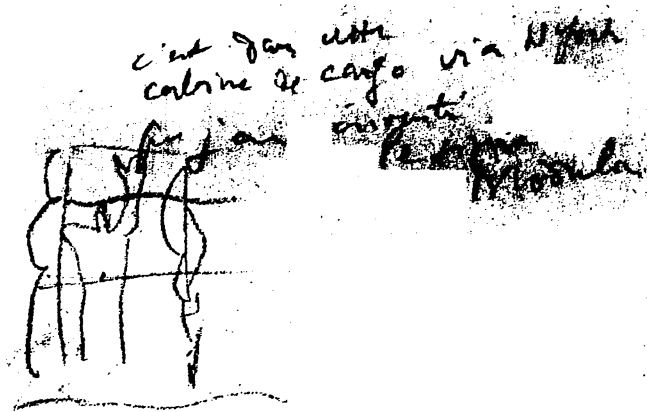 c'est dans cette
cabine de cargo via N York
que j'ai inventé
le
Modulor